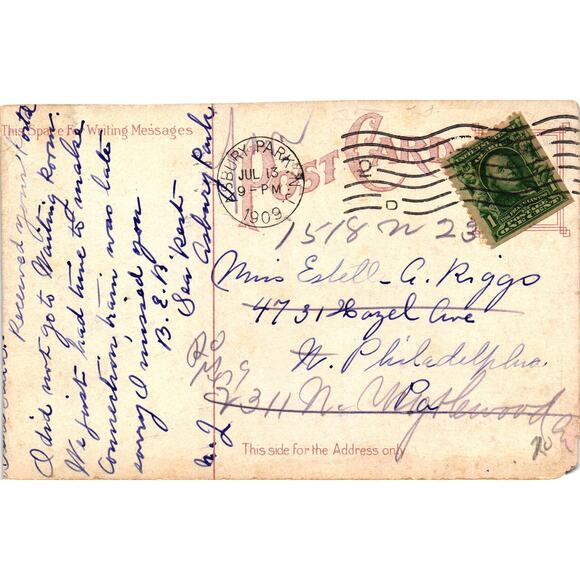 This Space For Writing Messages
Received your Postal
I did not go to Waiting Room.
We just had time to make
Connection train was late
sorry I missed you
B. E. B
Sea Rest
Asbury Park
N. J
POST CARD
ASBURY PARK, N.J.
JUL 13
9-PM
1909
D
1518 N 23
Miss Estell A. Riggs
4731 Hazel Ave
N. Philadelphia
Pa
2311 N.
This side for the Address only